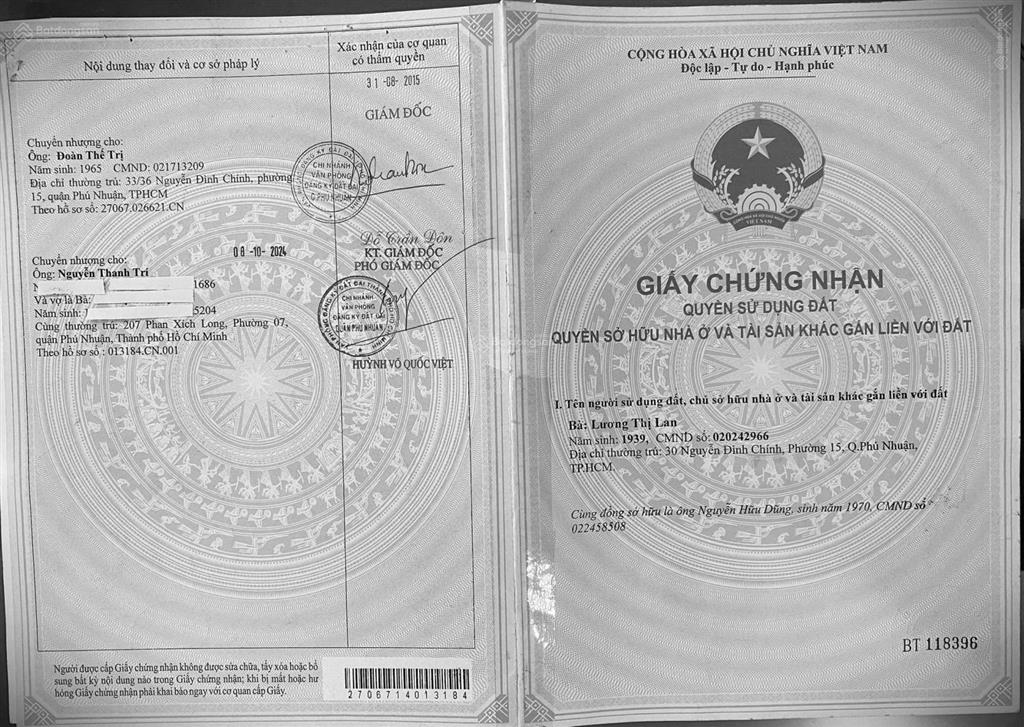 Batdongsan
Nội dung thay đổi và cơ sở pháp lý
Xác nhận của cơ quan
có thẩm quyền
31-08-2015
GIÁM ĐỐC
Chuyển nhượng cho:
Ông: Đoàn Thế Trị
Năm sinh: 1965 CMND: 021713209
Địa chỉ thường trú: 33/36 Nguyễn Đình Chính, phường
15, quận Phú Nhuận, TPHCM
Theo hồ sơ số: 27067.026621.CN
CHI NHÁNH
VĂN PHÒNG
ĐĂNG KÝ ĐẤT ĐAI
Q.PHÚ NHUẬN
Đỗ Trần Đôn
08-10-2024
KT. GIÁM ĐỐC
PHÓ GIÁM ĐỐC
Chuyển nhượng cho:
Ông: Nguyễn Thanh Trí
1686
Và vợ là Bà:
Năm sinh: 5204
Cùng thường trú: 207 Phan Xích Long, Phường 07,
quận Phú Nhuận, Thành phố Hồ Chí Minh
Theo hồ sơ số : 013184.CN.001
CHI NHÁNH
VĂN PHÒNG
ĐĂNG KÝ ĐẤT ĐAI
QUẬN PHÚ NHUẬN
HUỲNH VÕ QUỐC VIỆT
Người được cấp Giấy chứng nhận không được sửa chữa, tẩy xóa hoặc bổ
sung bất kỳ nội dung nào trong Giấy chứng nhận; khi bị mất hoặc hư
hỏng Giấy chứng nhận phải khai báo ngay với cơ quan cấp Giấy.
2706714013184
CỘNG HÒA XÃ HỘI CHỦ NGHĨA VIỆT NAM
Độc lập - Tự do - Hạnh phúc
VIỆT NAM
GIẤY CHỨNG NHẬN
QUYỀN SỬ DỤNG ĐẤT
QUYỀN SỞ HỮU NHÀ Ở VÀ TÀI SẢN KHÁC GẮN LIỀN VỚI ĐẤT
I. Tên người sử dụng đất, chủ sở hữu nhà ở và tài sản khác gắn liền với đất
Bà: Lương Thị Lan
Năm sinh: 1939, CMND số: 020242966
Địa chỉ thường trú: 30 Nguyễn Đình Chính, Phường 15, Q.Phú Nhuận,
TP.HCM.
Cùng đồng sở hữu là ông Nguyễn Hữu Dũng, sinh năm 1970, CMND số
022458508
BT 118396